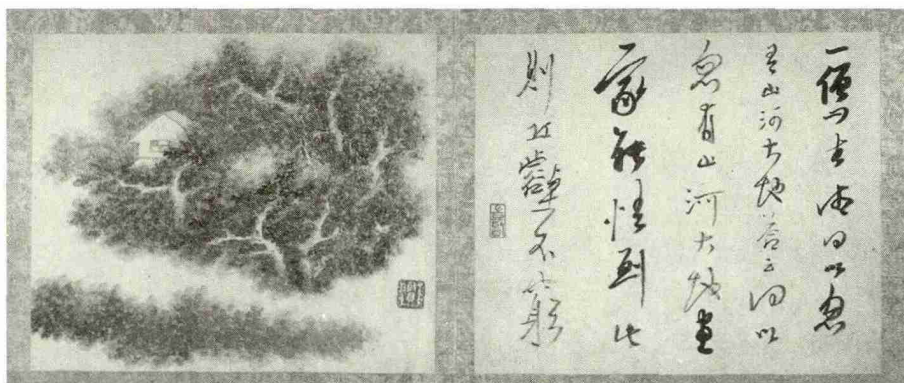 一僧問古德何以忽
有山河大地答云何以
忽有山河大地畫
家能悟到此
則丘壑不窮